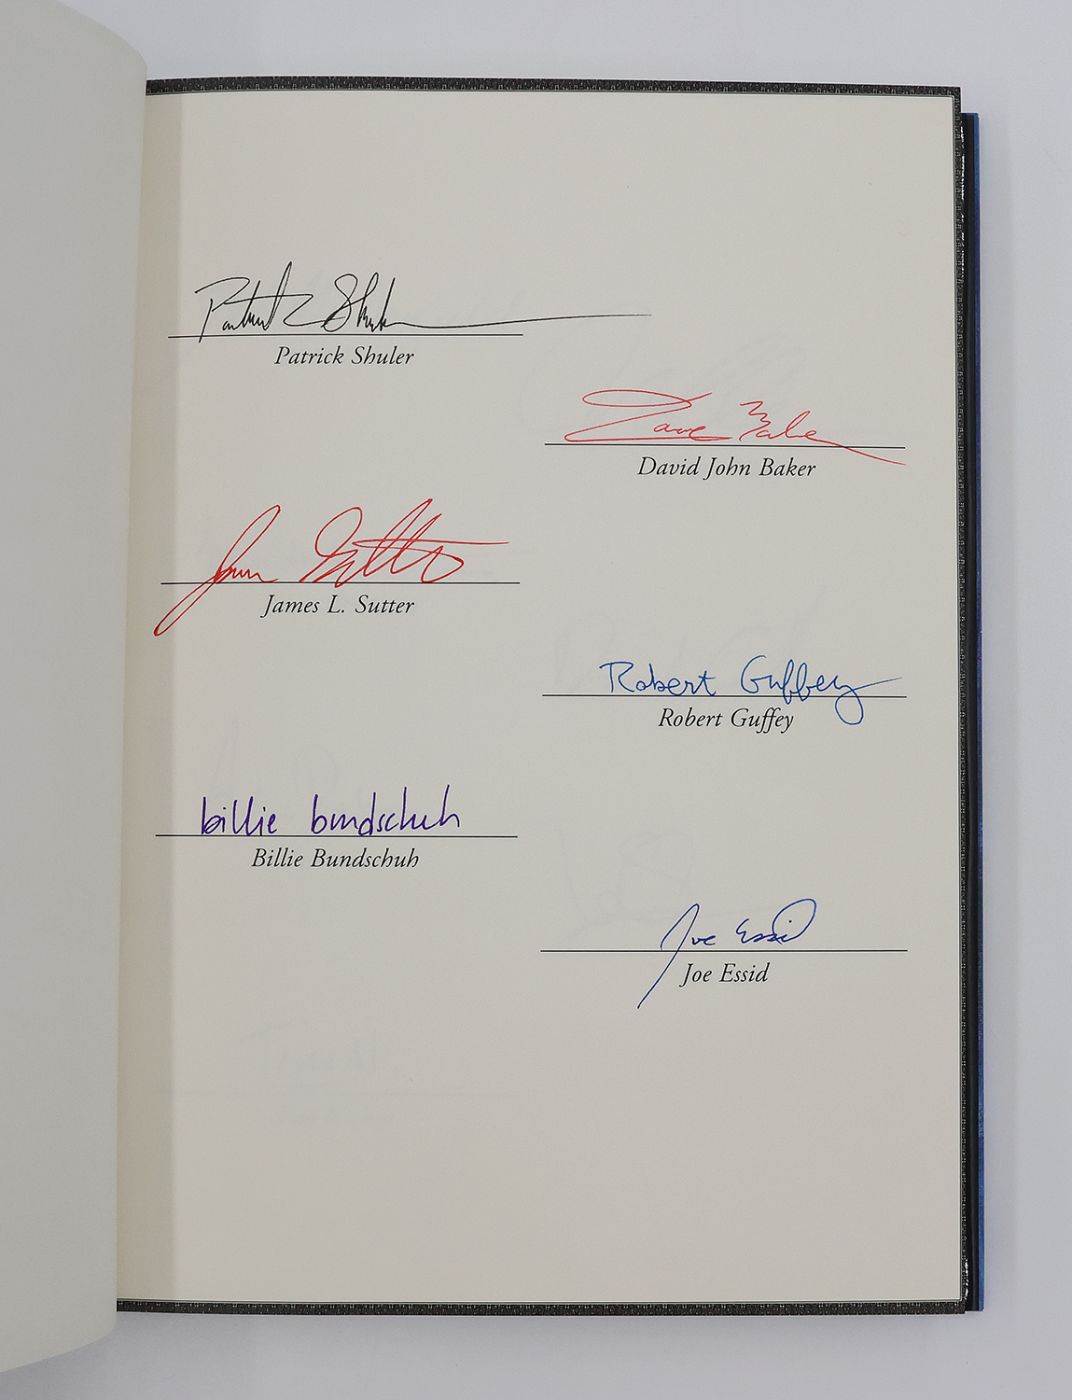 Patrick Shuler
Patrick Shuler
Dave Baker
David John Baker
James Sutter
James L. Sutter
Robert Guffey
Robert Guffey
billie bundschuh
Billie Bundschuh
Joe Essid
Joe Essid